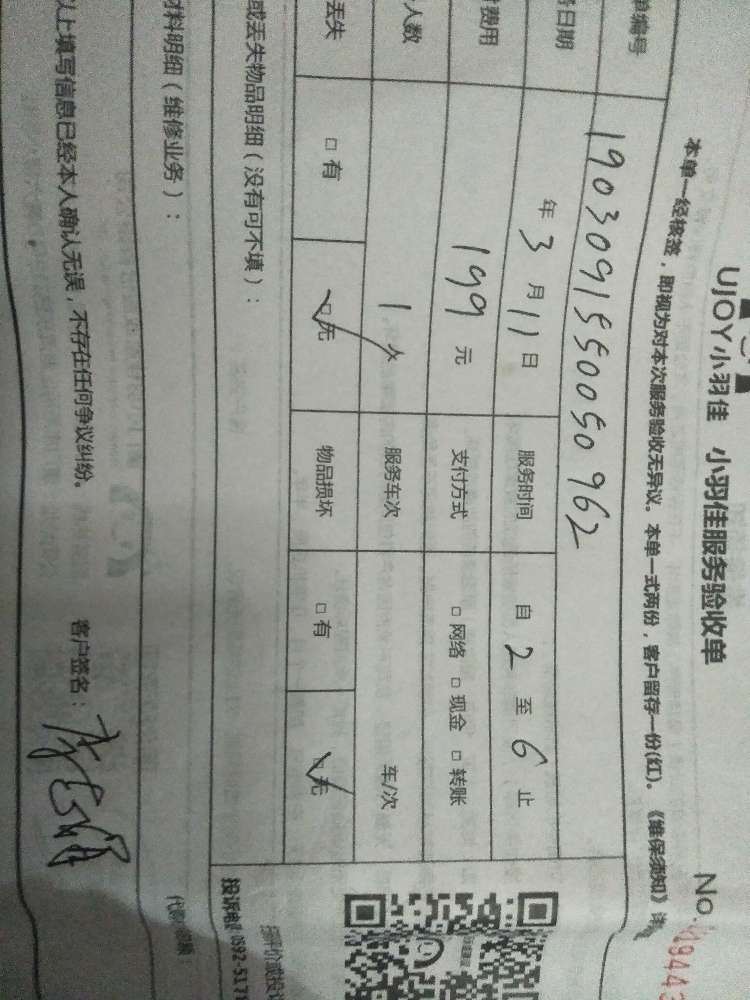 UJOY小羽佳 小羽佳服务验收单
No.
本单一经接签，即视为对本次服务验收无异议。本单一式两份，客户留存一份(红)。《维保须知》详
单编号 190309155005 0962
日期 年 3 月 11 日 服务时间 自 2 至 6 止
费用 199 元 支付方式 □ 网络 □ 现金 □ 转账
人数 1 人 服务车次 车/次
丢失 □ 有 □ 无 物品损坏 □ 有 □ 无
或丢失物品明细（没有可不填）：
材料明细（维修业务）：
投诉电 0592-517
以上填写信息已经本人确认无误，不存在任何争议纠纷。 客户签名：